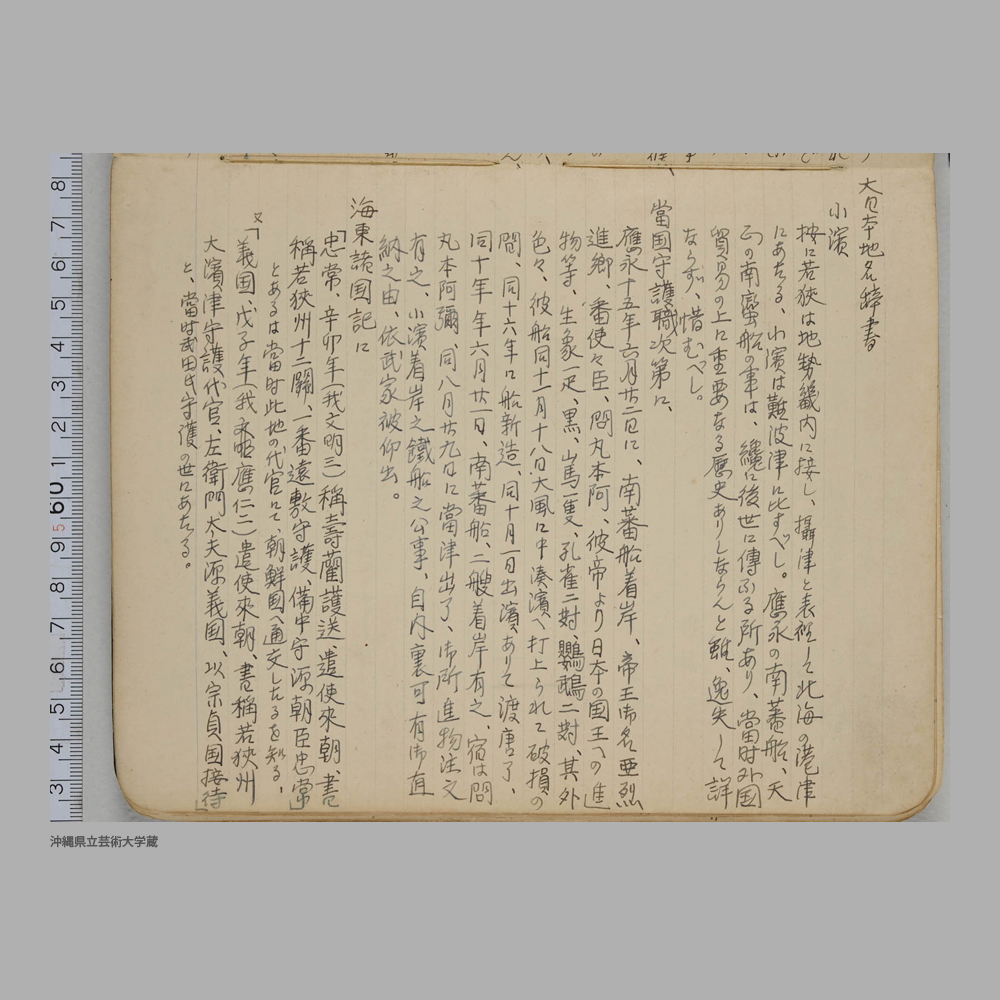 大日本地名辞書
小濱
按に若狭は地勢畿内に接し、攝津と表裡して北海の港津
にあたる、小濱は難波津に比すべし。應永の南蕃船、天
正の南蠻船の事は、纔に後世に傳ふる所あり、當時外国
貿易の上に重要なる歴史ありしならんと雖、逸失して詳
ならず、惜むべし。
當国守護職次第に、
應永十五年六月廿二日に、南蕃船着岸、帝王御名亜烈
進郷、蕃使々臣、問丸本阿、彼帝より日本の国王への進
物等、生象一疋、黒、山馬一隻、孔雀二對、鸚鵡二對、其外
色々、彼船同十一月十八日大風に中湊濱へ打上られて破損の
間、同十六年に船新造、同十月一日出濱ありて渡唐了、
同十年年六月廿一日、南蕃船、二艘着岸有之、宿は問
丸本阿彌、同八月廿九日に當津出了、御所進物注文
有之、小濱着岸之鐵船之公事、自内裏可有御直
納之由、依武家被仰出。
海東諸国記に
「忠常、辛卯年(我文明三)稱壽藺護送、遣使來朝、書
稱若狭州十二關、一番遠敷守護、備中守源朝臣忠常」
とあるは當時此地の代官にて朝鮮国へ通交したるを知る、
又「義国、戊子年(我應仁二)遣使來朝、書稱若狭州
大濱津守護代官、左衛門大夫源義国、以宗貞国接待」
と、當時武田氏守護の世にあたる。
沖縄県立芸術大学蔵